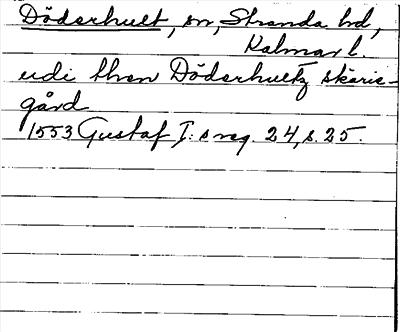 Döderhult, sn, Stranda hd,
Kalmar l.
udi then Döderhultz skäric-
gård
1553 Gustaf I:s reg. 24, s. 25.